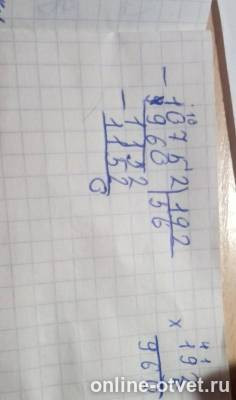 10
- 10752 | 192
960 | 56
- 1152
1152
0
41
× 192
960
online-otvet.ru